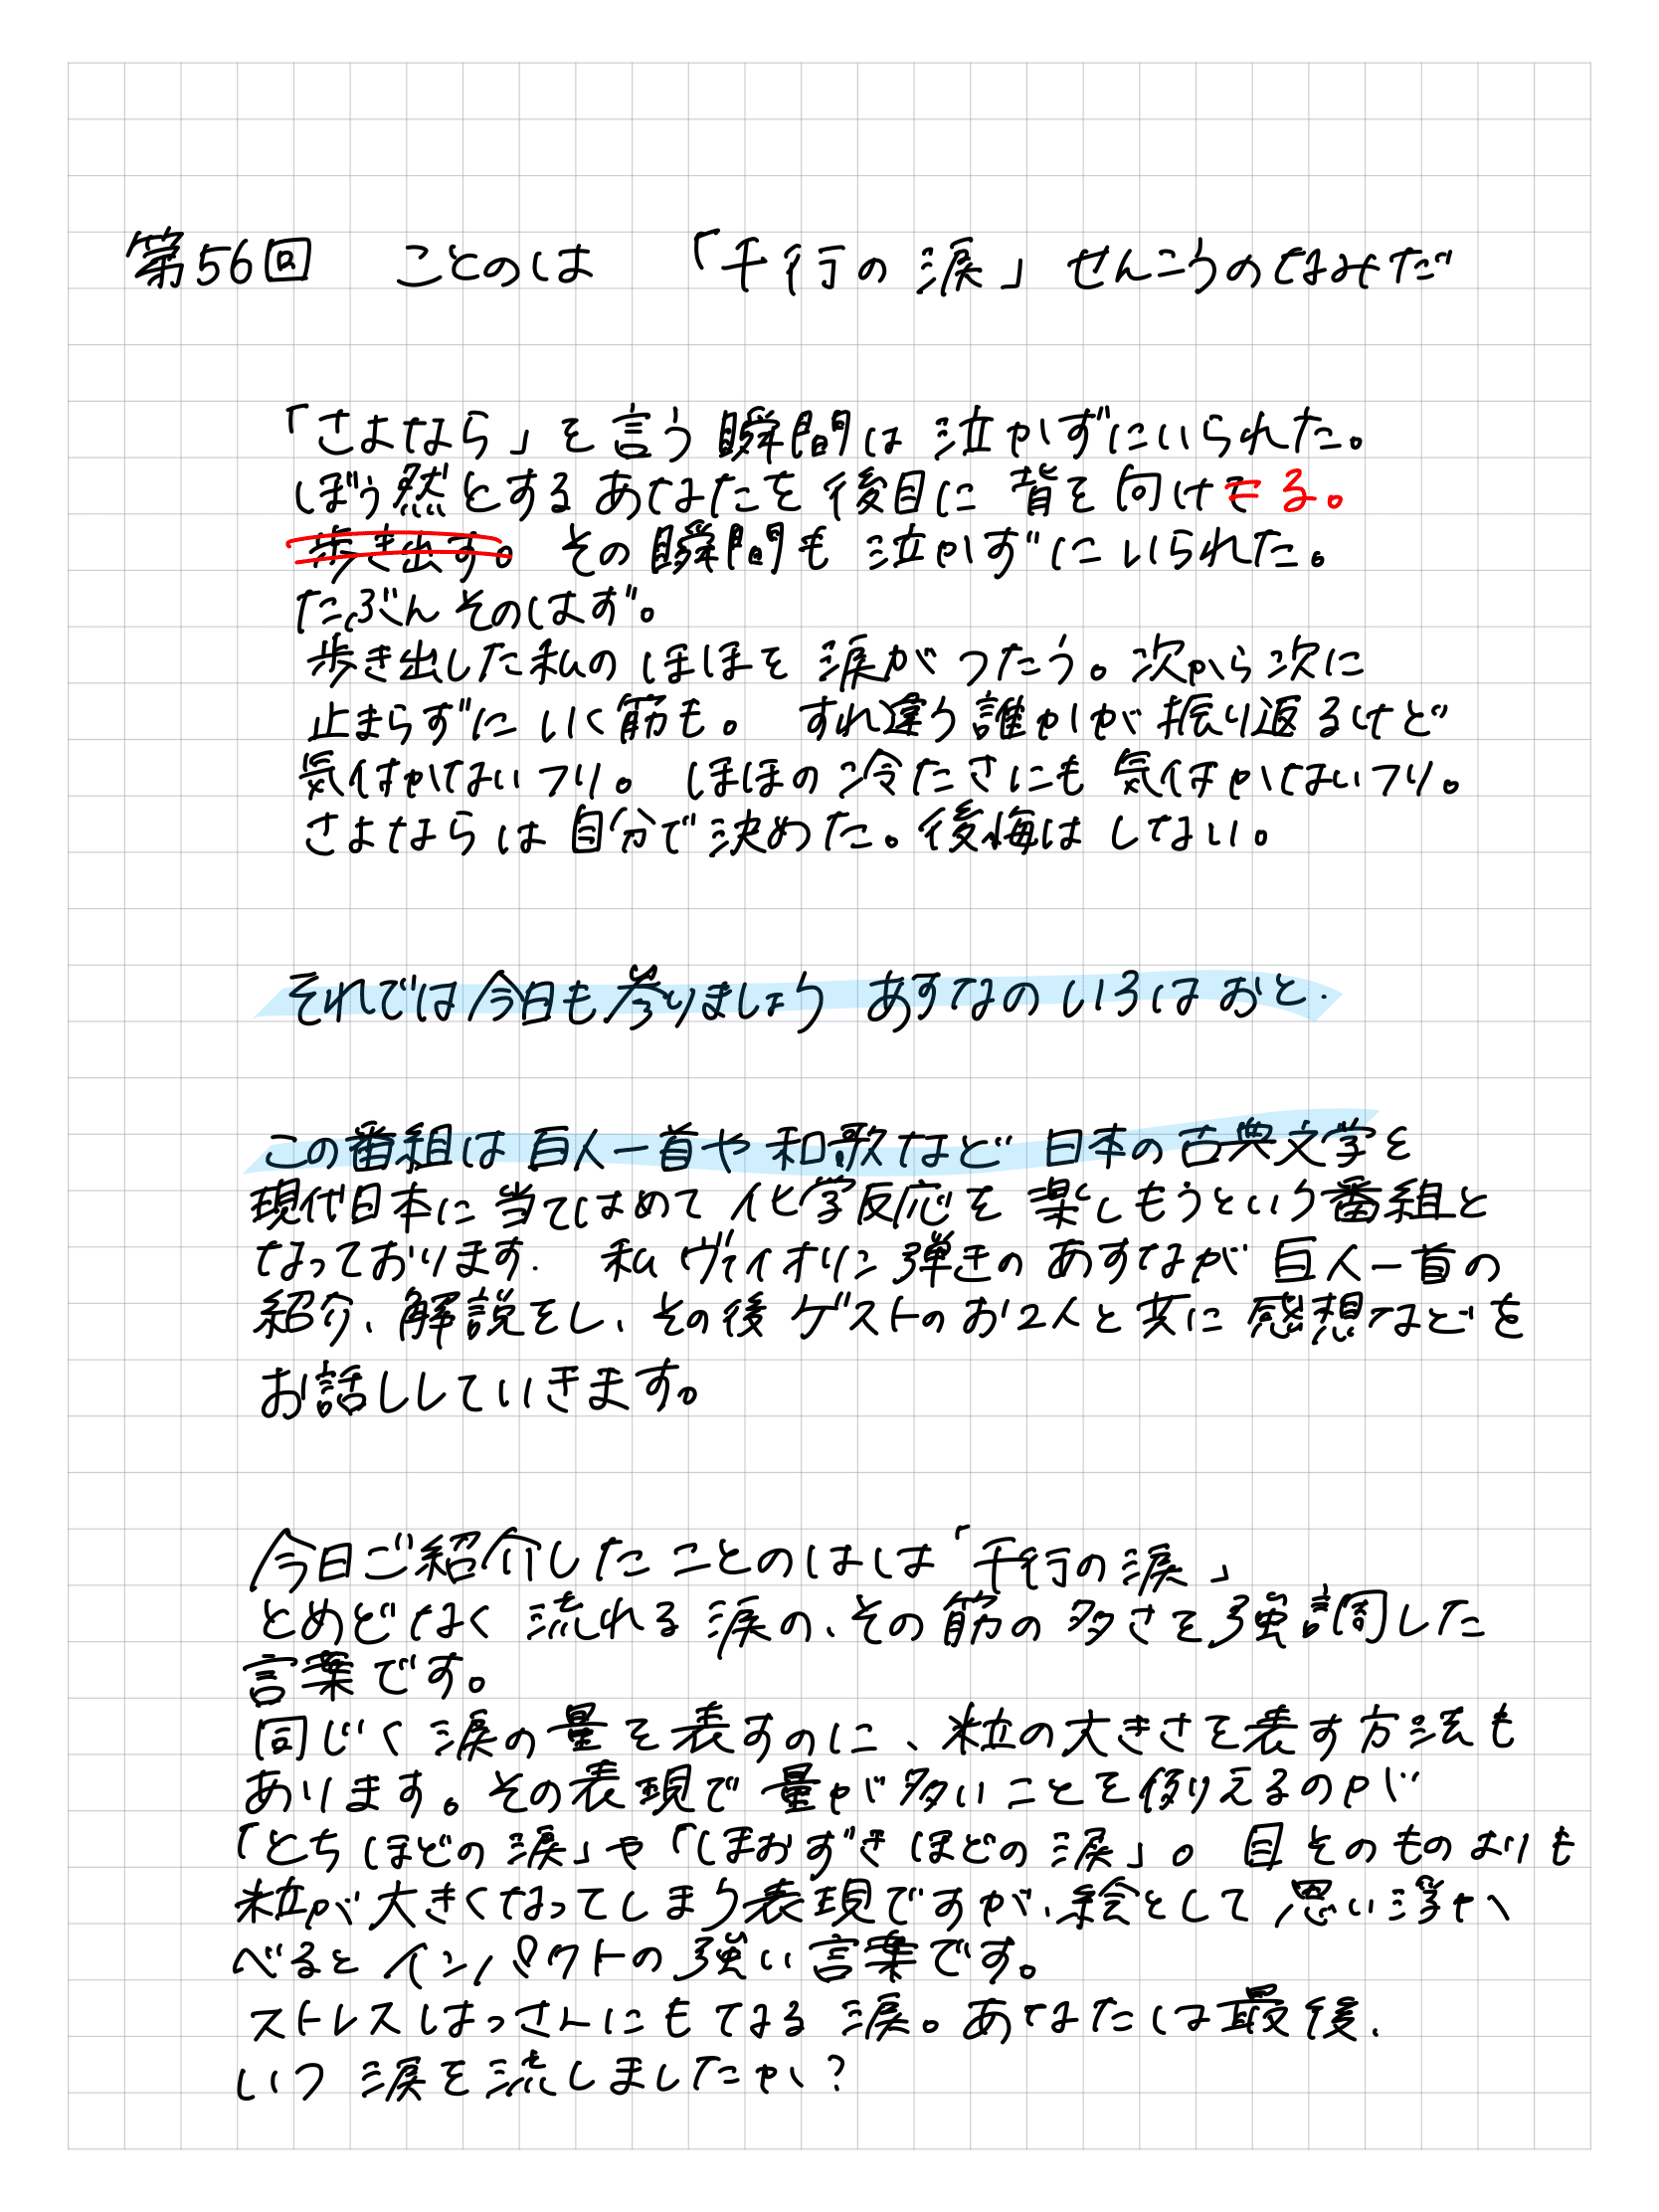 第56回 ことのは 「千行の涙」せんこうのなみだ
「さよなら」を言う瞬間は 泣かずにいられた。
ぼう然とするあなたを後目に 背を向けてる。
歩き出す。 その瞬間も 泣かずにいられた。
たぶんそのはず。
歩き出した私の ほほを 涙がつたう。次から次に
止まらずに いく筋も。 すれ違う誰かが振り返るけど
気付かないフリ。 ほほの冷たさにも 気付かないフリ。
さよならは 自分で決めた。後悔は してない。
それでは今日も参りましょう あすなのいろはおと.
この番組は 百人一首や 和歌など 日本の古典文学を
現代日本に当てはめて 化学反応を 楽しもうという番組と
なっております. 私 ヴァイオリン弾きの あすなが 百人一首の
紹介、解説をし、その後 ゲストのお2人と共に 感想などを
お話ししていきます。
今日ご紹介した ことのはは「千行の涙」
とめどなく 流れる 涙の、その筋の 多さを強調した
言葉です。
同じく 涙の量を表すのに、粒の大きさを表す方法も
あります。その表現で 量が多いことを例えるのが
「とちほどの涙」や「ほおずきほどの涙」。 目そのものよりも
粒が大きくなってしまう表現ですが、絵として思い浮か
べるとインパクトの強い言葉です。
ストレスはっさんにもてなる 涙。あなたは最後、
いつ 涙を流しましたか？